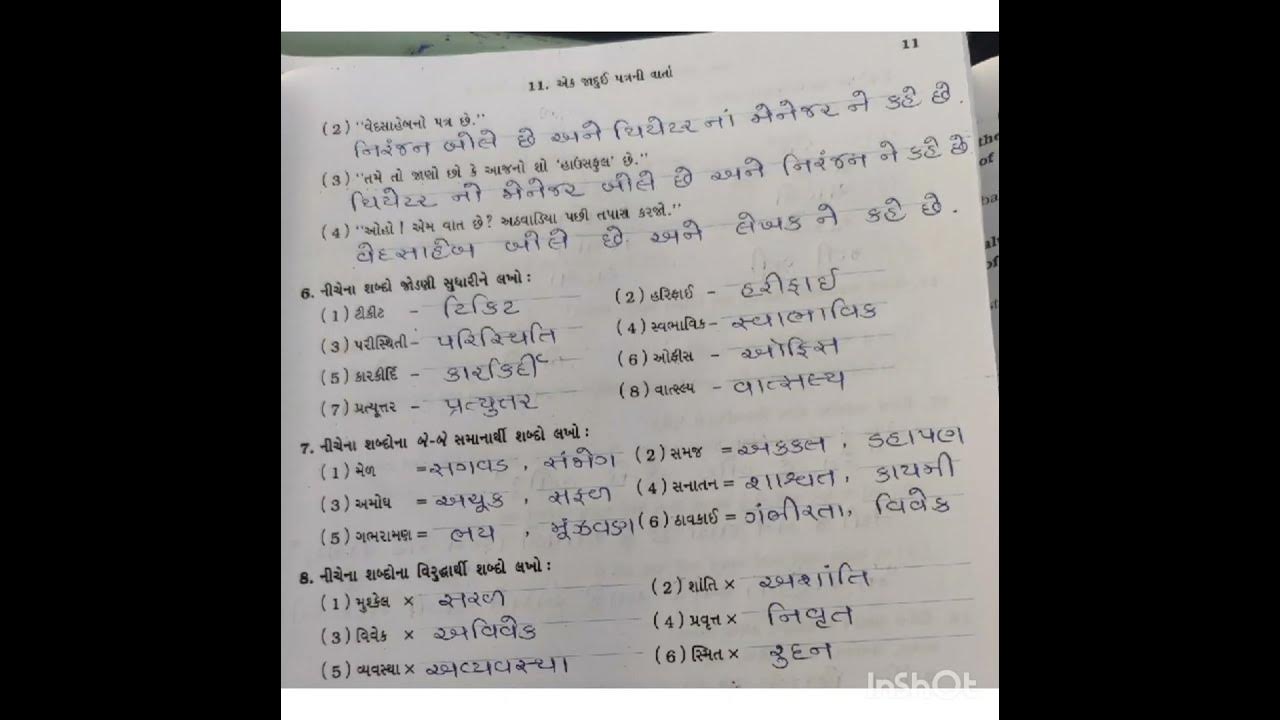 11
11. એક જાદુઈ પત્રની વાર્તા
(2) "વેદસાહેબનો પત્ર છે."
નિરંજન બોલે છે અને થિયેટરનાં મેનેજર ને કહે છે.
(3) "તમે તો જાણો છો કે આજનો શો 'હાઉસફુલ' છે."
થિયેટર નો મેનેજર બોલે છે અને નિરંજન ને કહે છે
(4) "ઓહો! એમ વાત છે? અઠવાડિયા પછી તપાસ કરજો."
વેદસાહેબ બોલે છે. અને લેખક ને કહે છે.
6. નીચેના શબ્દો જોડણી સુધારીને લખો:
(1) ટીકીટ - ટિકિટ (2) હરિફાઈ - હરીફાઈ
(3) પરીસ્થિતી - પરિસ્થિતિ (4) સ્વભાવિક - સ્વાભાવિક
(5) કારકીર્દિ - કારકિર્દી (6) ઓફીસ - ઓફિસ
(7) પ્રત્યૂત્તર - પ્રત્યુત્તર (8) વાત્સ્લ્ય - વાત્સલ્ય
7. નીચેના શબ્દોના બે-બે સમાનાર્થી શબ્દો લખો:
(1) મેળ = સગવડ, સંજોગ (2) સમજ = અક્કલ, ડહાપણ
(3) અમોઘ = અચૂક, સફળ (4) સનાતન = શાશ્વત, કાયમી
(5) ગભરામણ = ભય, મૂંઝવણ (6) ઠાવકાઈ = ગંભીરતા, વિવેક
8. નીચેના શબ્દોના વિરુદ્ધાર્થી શબ્દો લખો:
(1) મુશ્કેલ × સરળ (2) શાંતિ × અશાંતિ
(3) વિવેક × અવિવેક (4) પ્રવૃત્ત × નિવૃત
(5) વ્યવસ્થા × અવ્યવસ્થા (6) સ્મિત × રુદન
the
of
InShOt